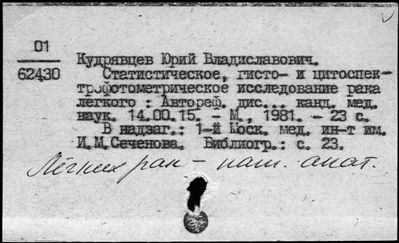 01
62430
Кудрявцев Юрий Владиславович.
Статистическое, гисто- и цитоспек-
трофотометрическое исследование рака
легкого : Автореф. дис... канд. мед.
наук. 14.00.15. - М., 1981. - 23 с.
В надзаг.: 1-й Моск. мед. ин-т им.
И.М.Сеченова. Библиогр.: с. 23.
Легких рак - пат. анат.